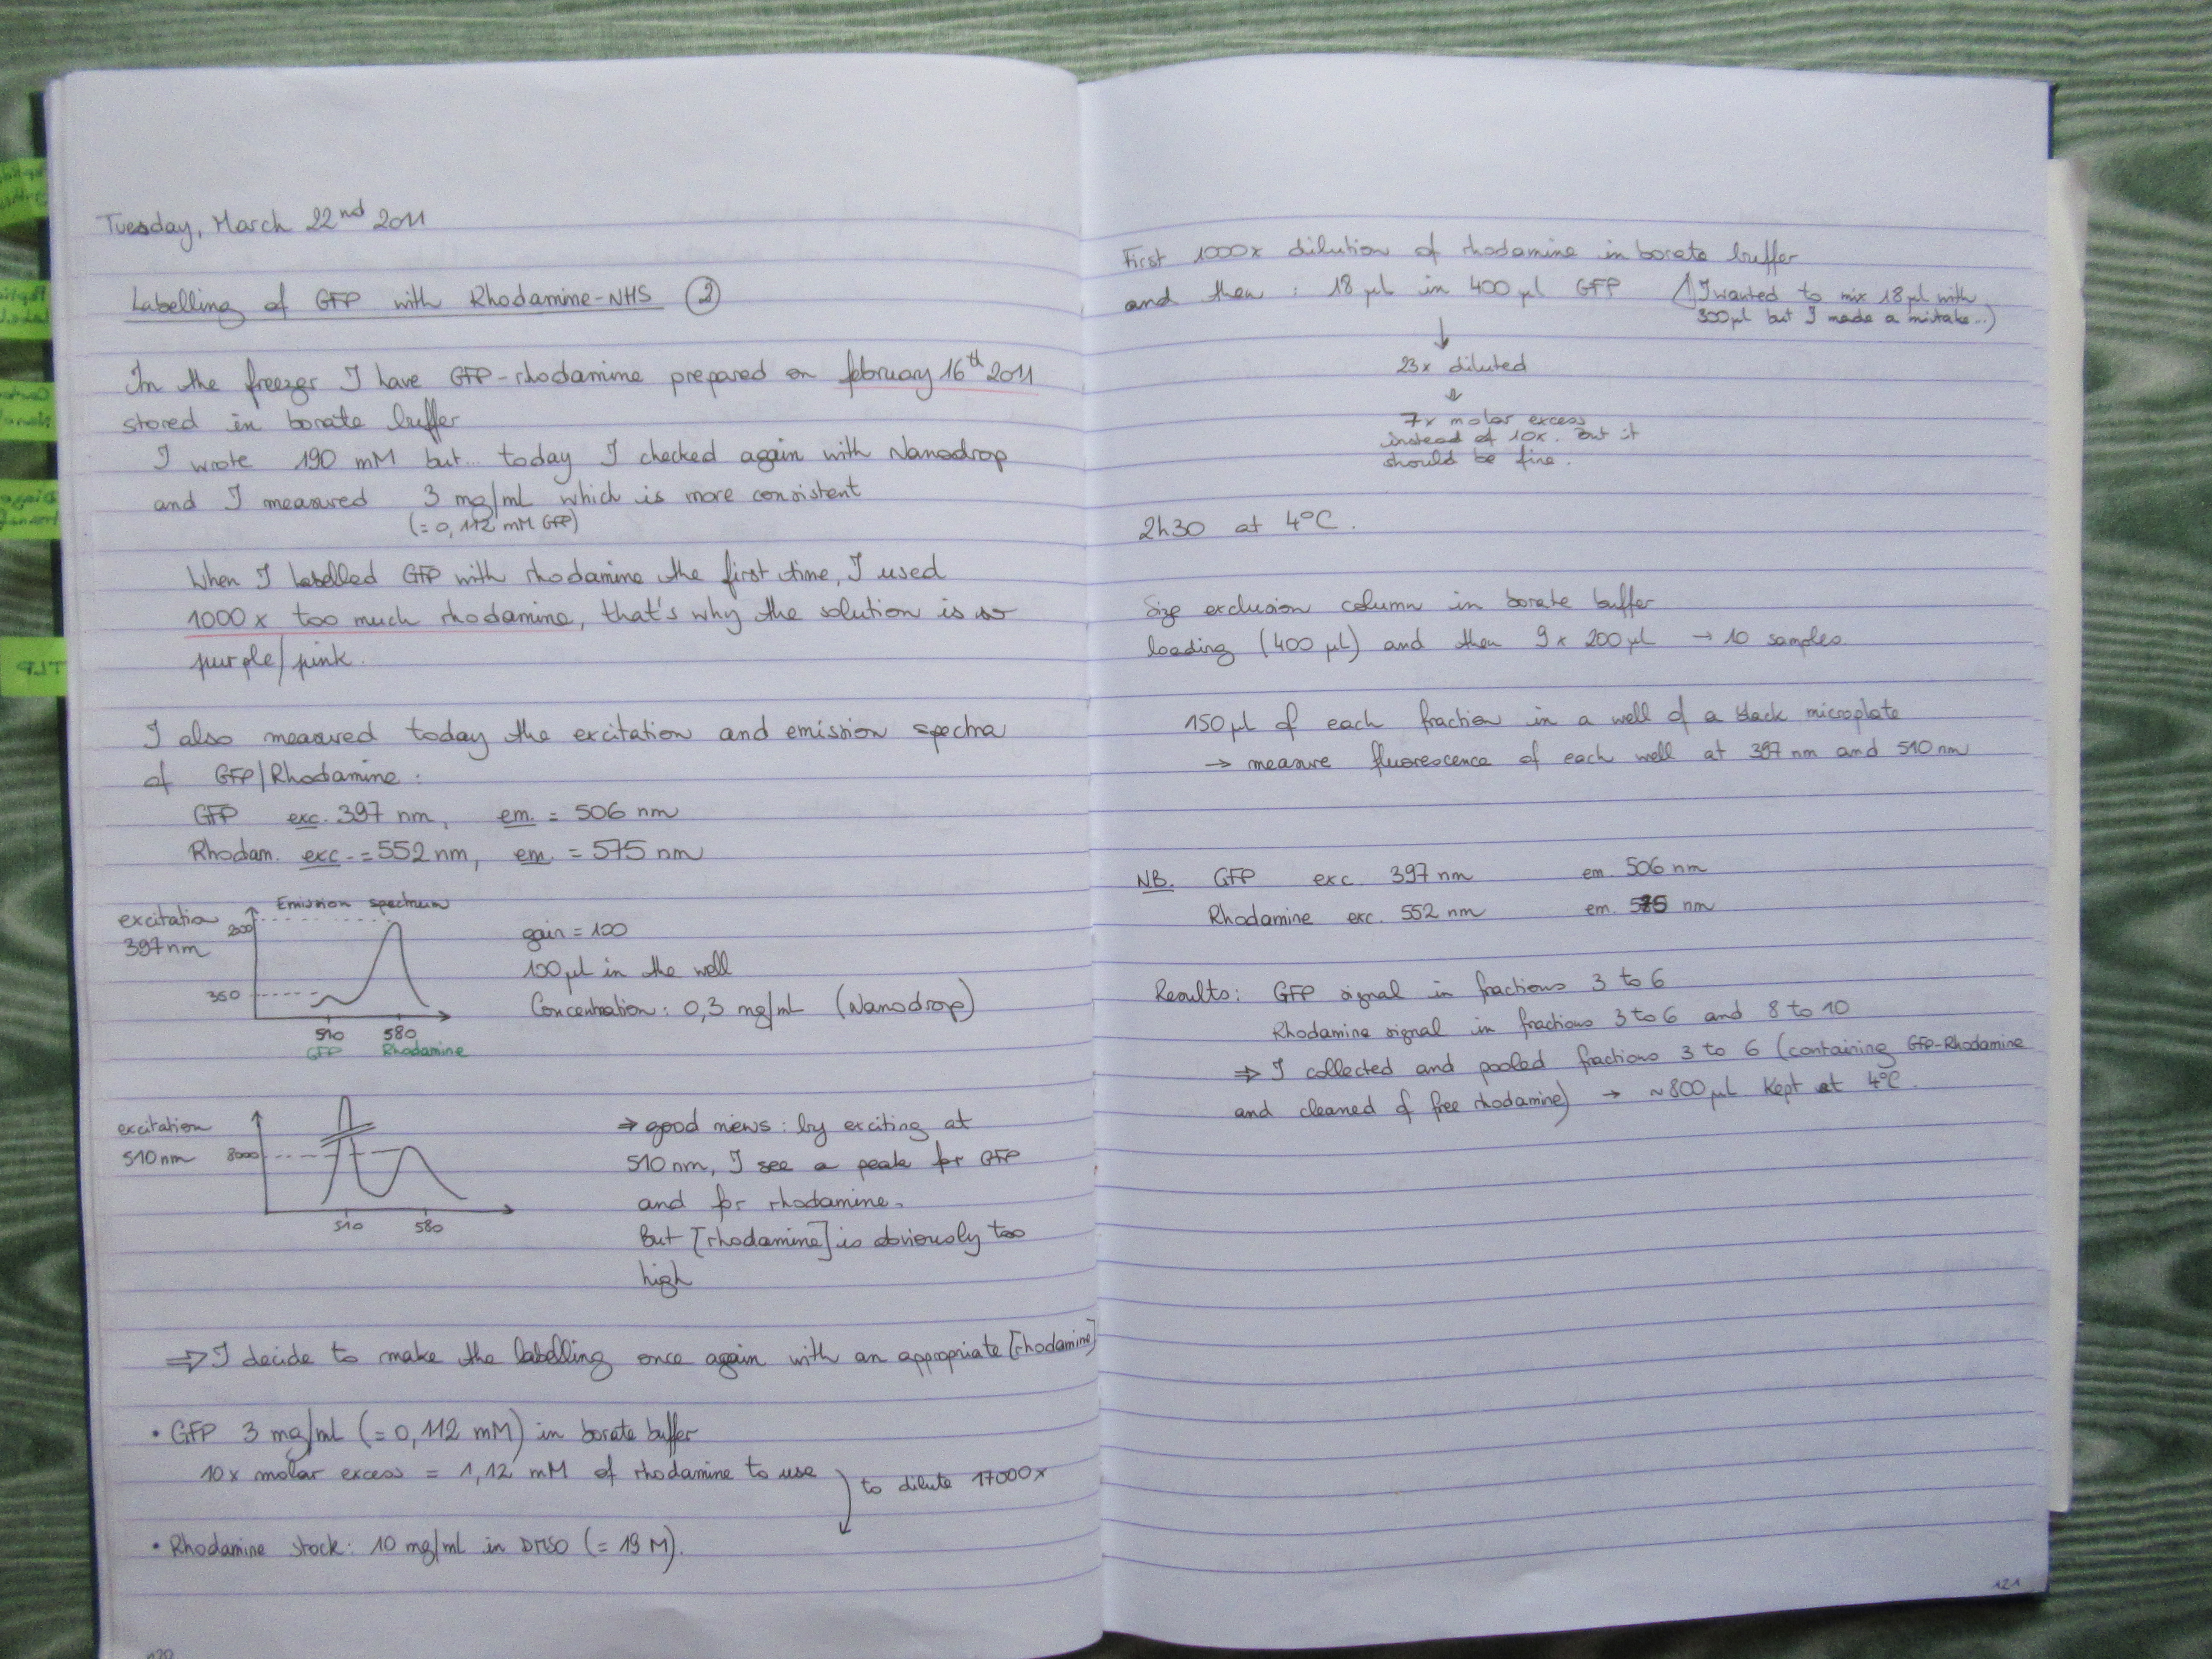 Tuesday, March 22nd 2011
Labelling of GFP with Rhodamine-NHS ②
In the freezer I have GFP-rhodamine prepared on february 16th 2011
stored in borate buffer
I wrote 190 mM but... today I checked again with Nanodrop
and I measured 3 mg/mL which is more consistent
(= 0,112 mM GFP)
When I labelled GFP with rhodamine the first time, I used
1000 x too much rhodamine, that's why the solution is so
purple/pink.
I also measured today the excitation and emission spectra
of GFP/Rhodamine :
GFP exc. 397 nm, em. = 506 nm
Rhodam. exc. = 552 nm, em. = 575 nm
Emission spectrum
excitation
397 nm
350
510 580
GFP Rhodamine
gain = 100
100 µL in the well
Concentration : 0,3 mg/mL (Nanodrop)
excitation
510 nm
8000
510 580
⇒ good news : by exciting at
510 nm, I see a peak for GFP
and for rhodamine.
But [rhodamine] is obviously too
high
⇒ I decide to make the labelling once again with an appropriate [rhodamine]
• GFP 3 mg/mL (= 0,112 mM) in borate buffer
10x molar excess = 1,12 mM of rhodamine to use
to dilute 17000x
• Rhodamine stock : 10 mg/mL in DMSO (= 19 M).
First 1000x dilution of rhodamine in borate buffer
and then : 18 µL in 400 µL GFP
(I wanted to mix 18 µL with
300 µL but I made a mistake...)
23x diluted
7x molar excess
instead of 10x. But it
should be fine.
2h30 at 4°C.
Size exclusion column in borate buffer
loading (400 µL) and then 9 x 200 µL → 10 samples
150 µL of each fraction in a well of a black microplate
→ measure fluorescence of each well at 397 nm and 510 nm
NB. GFP exc. 397 nm em. 506 nm
Rhodamine exc. 552 nm em. 575 nm
Results : GFP signal in fractions 3 to 6
Rhodamine signal in fractions 3 to 6 and 8 to 10
⇒ I collected and pooled fractions 3 to 6 (containing GFP-Rhodamine
and cleaned of free rhodamine) → ~800 µL Kept at 4°C.
121
TLP